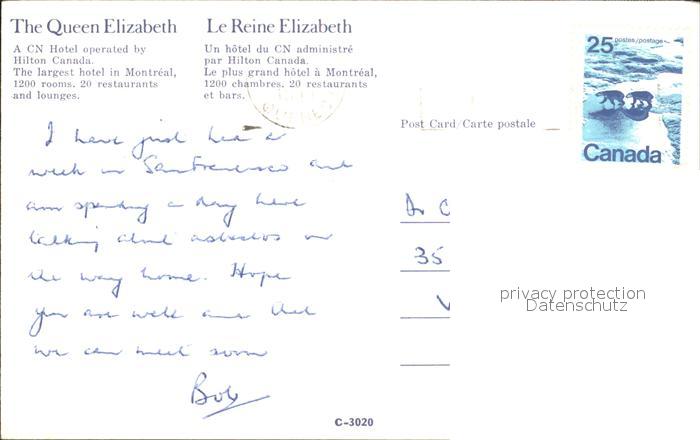 The Queen Elizabeth
A CN Hotel operated by
Hilton Canada.
The largest hotel in Montréal,
1200 rooms. 20 restaurants
and lounges.
Le Reine Elizabeth
Un hôtel du CN administré
par Hilton Canada.
Le plus grand hôtel à Montréal,
1200 chambres. 20 restaurants
et bars.
25 postes/postage
Canada
Post Card/Carte postale
I have just had a
week in San Francisco and
am spending a day here
talking about asbestos on
the way home. Hope
you are well and that
we can meet soon
Bob
Dr C
35
V
privacy protection
Datenschutz
C-3020